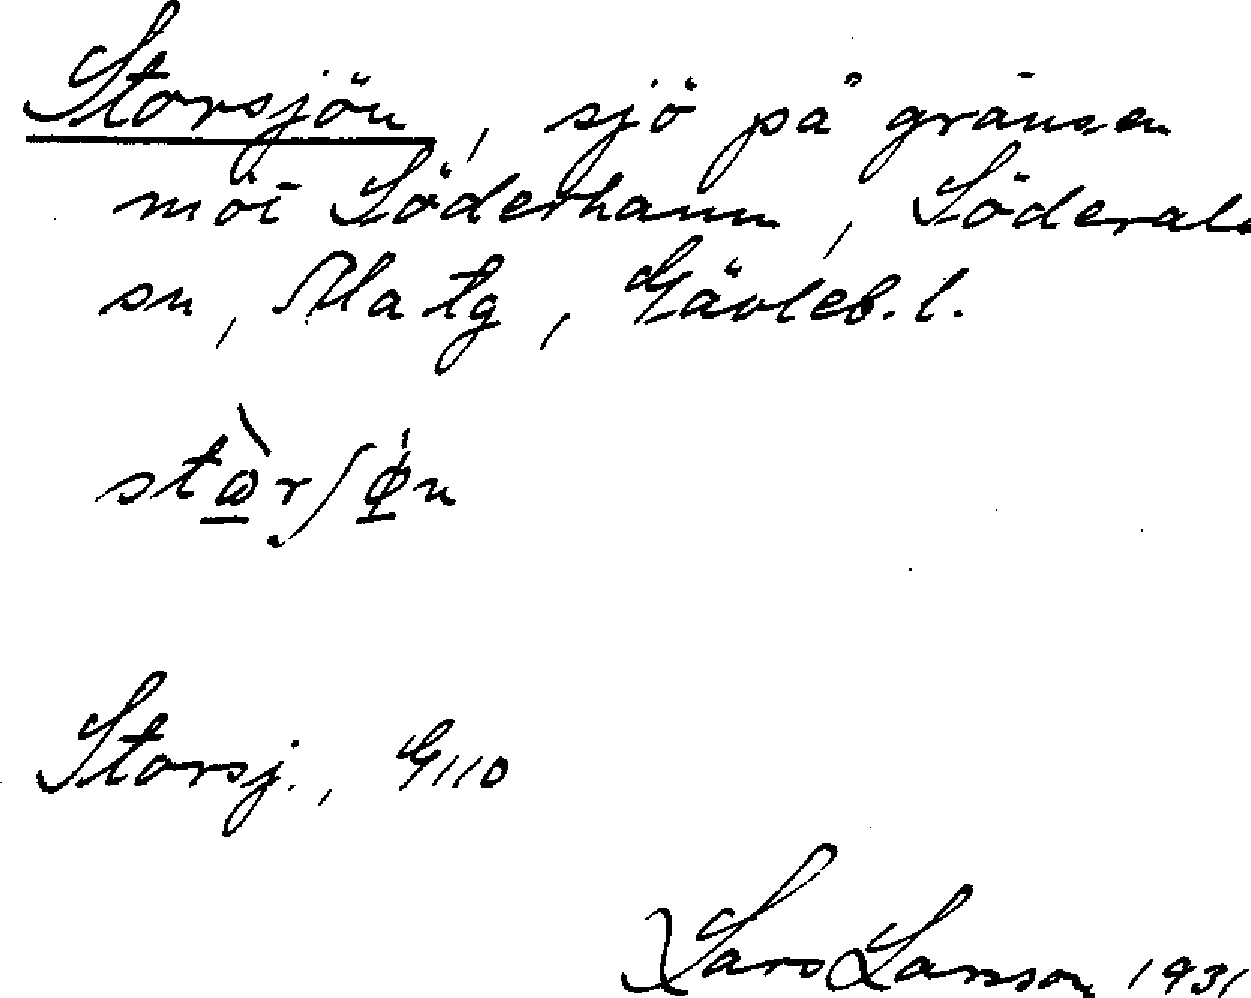 Storsjön, sjö på gränsen
möt Söderhamn, Söderala
sn, Ala tg, Gävleb. l.
Storsj., G110
Lars Larsson 1931